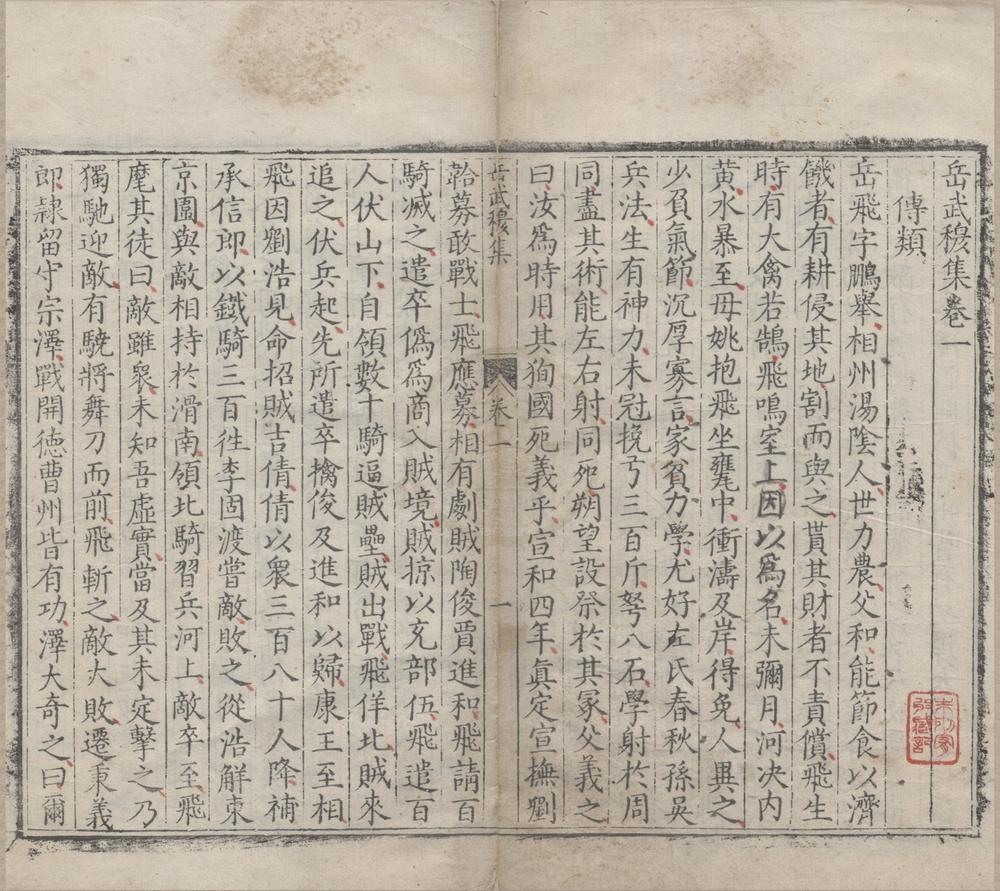 岳武穆集卷一
傳類
岳飛字鵬舉相州湯隂人世力農父和能節食以濟
饑者有耕侵其地割而與之貰其財者不責償飛生
時有大禽若鵠飛鳴室上因以爲名未彌月河决内
黄水暴至母姚抱飛坐甕中衝濤及岸得免人異之
少負氣節沉厚寡言家貧力學尤好左氏春秋孫吳
兵法生有神力未冠挽弓三百斤弩八石學射於周
同盡其術能左右射同死朔望設祭於其冢父義之
曰汝爲時用其狥國死義乎宣和四年真定宣撫劉
岳武穆集
卷一
一
韐募敢戰士飛應募相有劇賊陶俊賈進和飛請百
騎滅之遣卒僞爲商入賊境賊掠以充部伍飛遣百
人伏山下自領數十騎逼賊壘賊出戰飛佯北賊來
追之伏兵起先所遣卒擒俊及進和以歸康王至相
飛因劉浩見命招賊吉倩倩以衆三百八十人降補
承信郎以鐵騎三百徃李固渡嘗敵敗之從浩解東
京圍與敵相持於滑南領北騎習兵河上敵卒至飛
麾其徒曰敵雖衆未知吾虛實當及其未定擊之乃
獨馳迎敵有驍將舞刀而前飛斬之敵大敗遷秉義
郎隷留守宗澤戰開德曹州皆有功澤大奇之曰爾